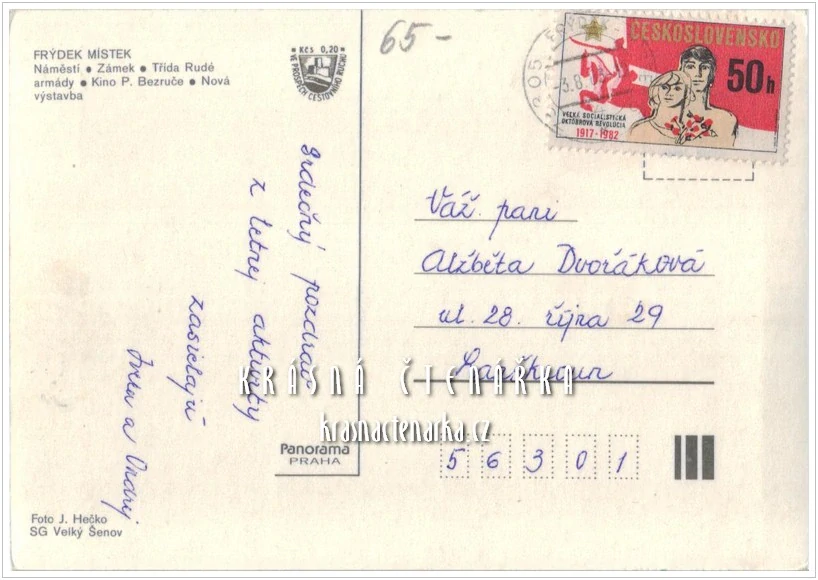 FRÝDEK MÍSTEK
Náměstí ● Zámek ● Třída Rudé
armády ● Kino P. Bezruče ● Nová
výstavba
Kčs 0,20
VE PROSPĚCH CESTOVNÍHO RUCHU
65-
ČESKOSLOVENSKO
50h
VEĽKÁ SOCIALISTICKÁ
OKTÓBROVÁ REVOLÚCIA
1917-1982
Srdečný pozdrav
z letnej aktivity
zasielajú
a Ondrej
Váž. pani
Alžběta Dvořáková
ul. 28. října 29
Lanškroun
56301
KRÁSNÁ ČTENÁŘKA
krasnactenarka.cz
Panorama
PRAHA
Foto J. Hečko
SG Velký Šenov